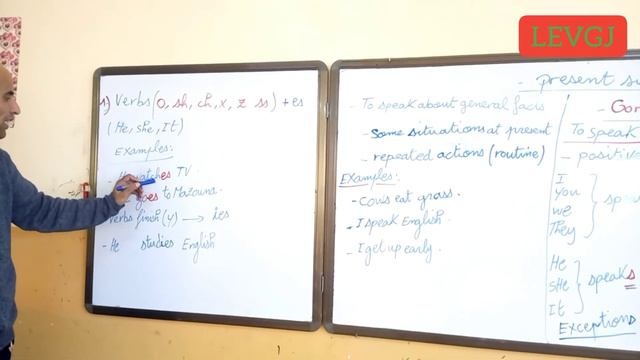 LEVGJ
1) Verbs (o, sh, ch, x, z ss) + es
(He, she, It)
Examples:
watches TV.
goes to Mazouna.
verbs finish (y) → ies
- He studies English
- To speak about general facts
- Some situations at present
- repeated actions (routine)
Examples:
- Cows eat grass.
- I speak English.
- I get up early.
- present
To speak
- positive
I
You
we
They
He
sHe
It
speaks
Exceptions